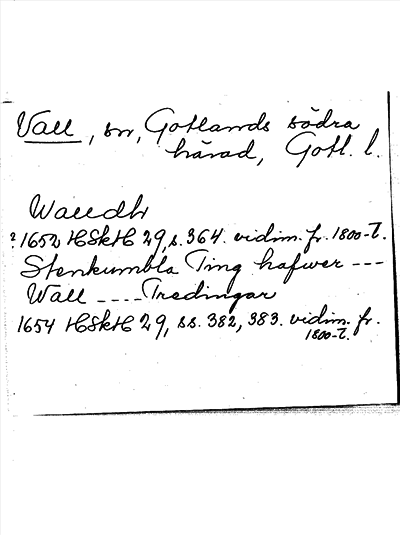 Vall, sn, Gotlands södra
härad, Gotl. l.
Walldh
? 1652 HSkH 29, s. 364. vidim. fr. 1800-t.
Stenkumbla Ting hafwer ---
Wall ---- Tredingar
1654 HSkH 29, ss. 382, 383. vidim. fr.
1800-t.